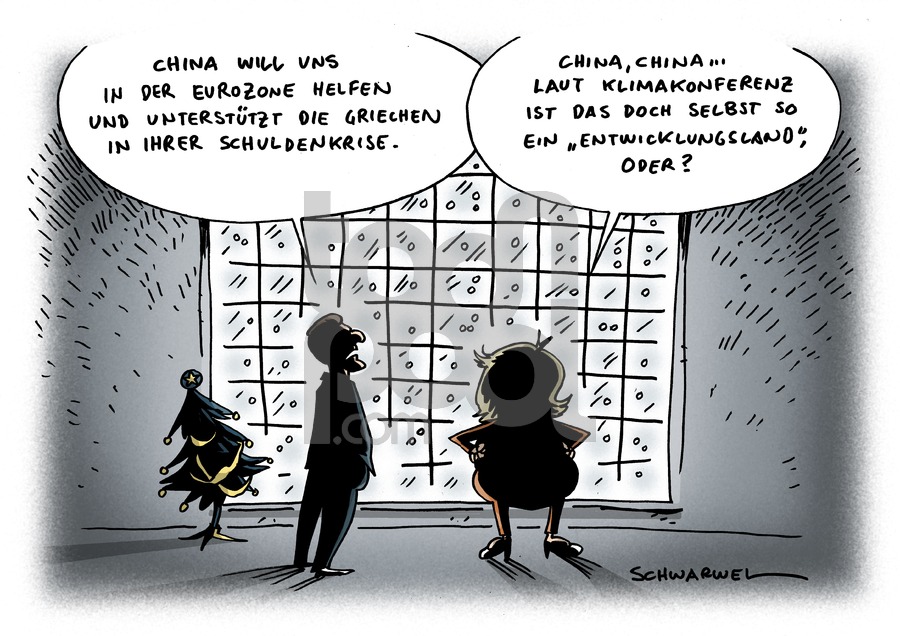 CHINA WILL UNS
IN DER EUROZONE HELFEN
UND UNTERSTÜTZT DIE GRIECHEN
IN IHRER SCHULDENKRISE.
CHINA, CHINA...
LAUT KLIMAKONFERENZ
IST DAS DOCH SELBST SO
EIN „ENTWICKLUNGSLAND“,
ODER?
toonpool
.com
SCHWARWEL